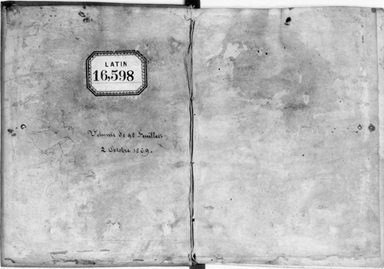 LATIN
16,598
Volume de 98 Feuillets
2 Octobre 1869.